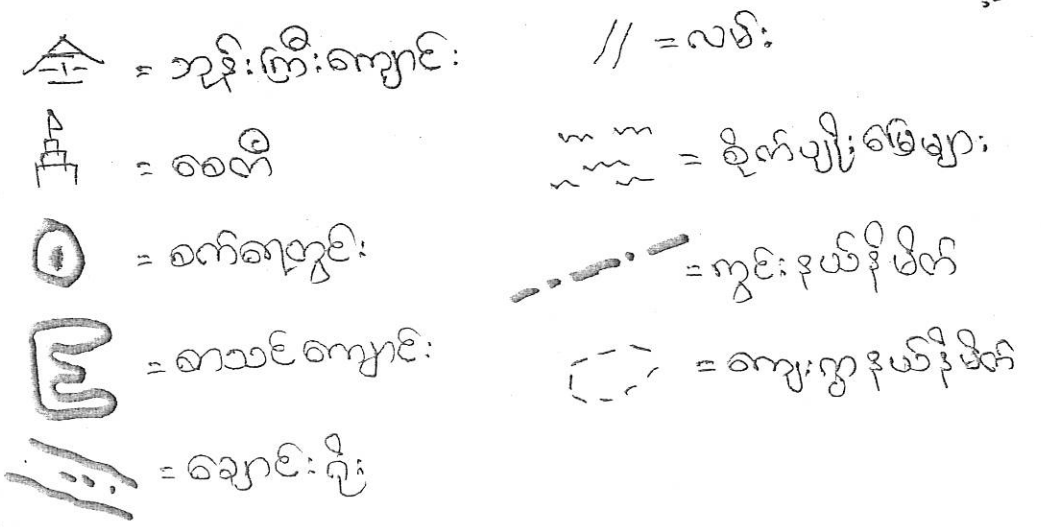 = ဘုန်းကြီးကျောင်း
= စေတီ
= စက်ရေတွင်း
= စာသင်ကျောင်း
= ချောင်းရိုး
// = လမ်း
= စိုက်ပျိုးမြေများ
= ကွင်းနယ်နိမိတ်
= ကျေးရွာနယ်နိမိတ်